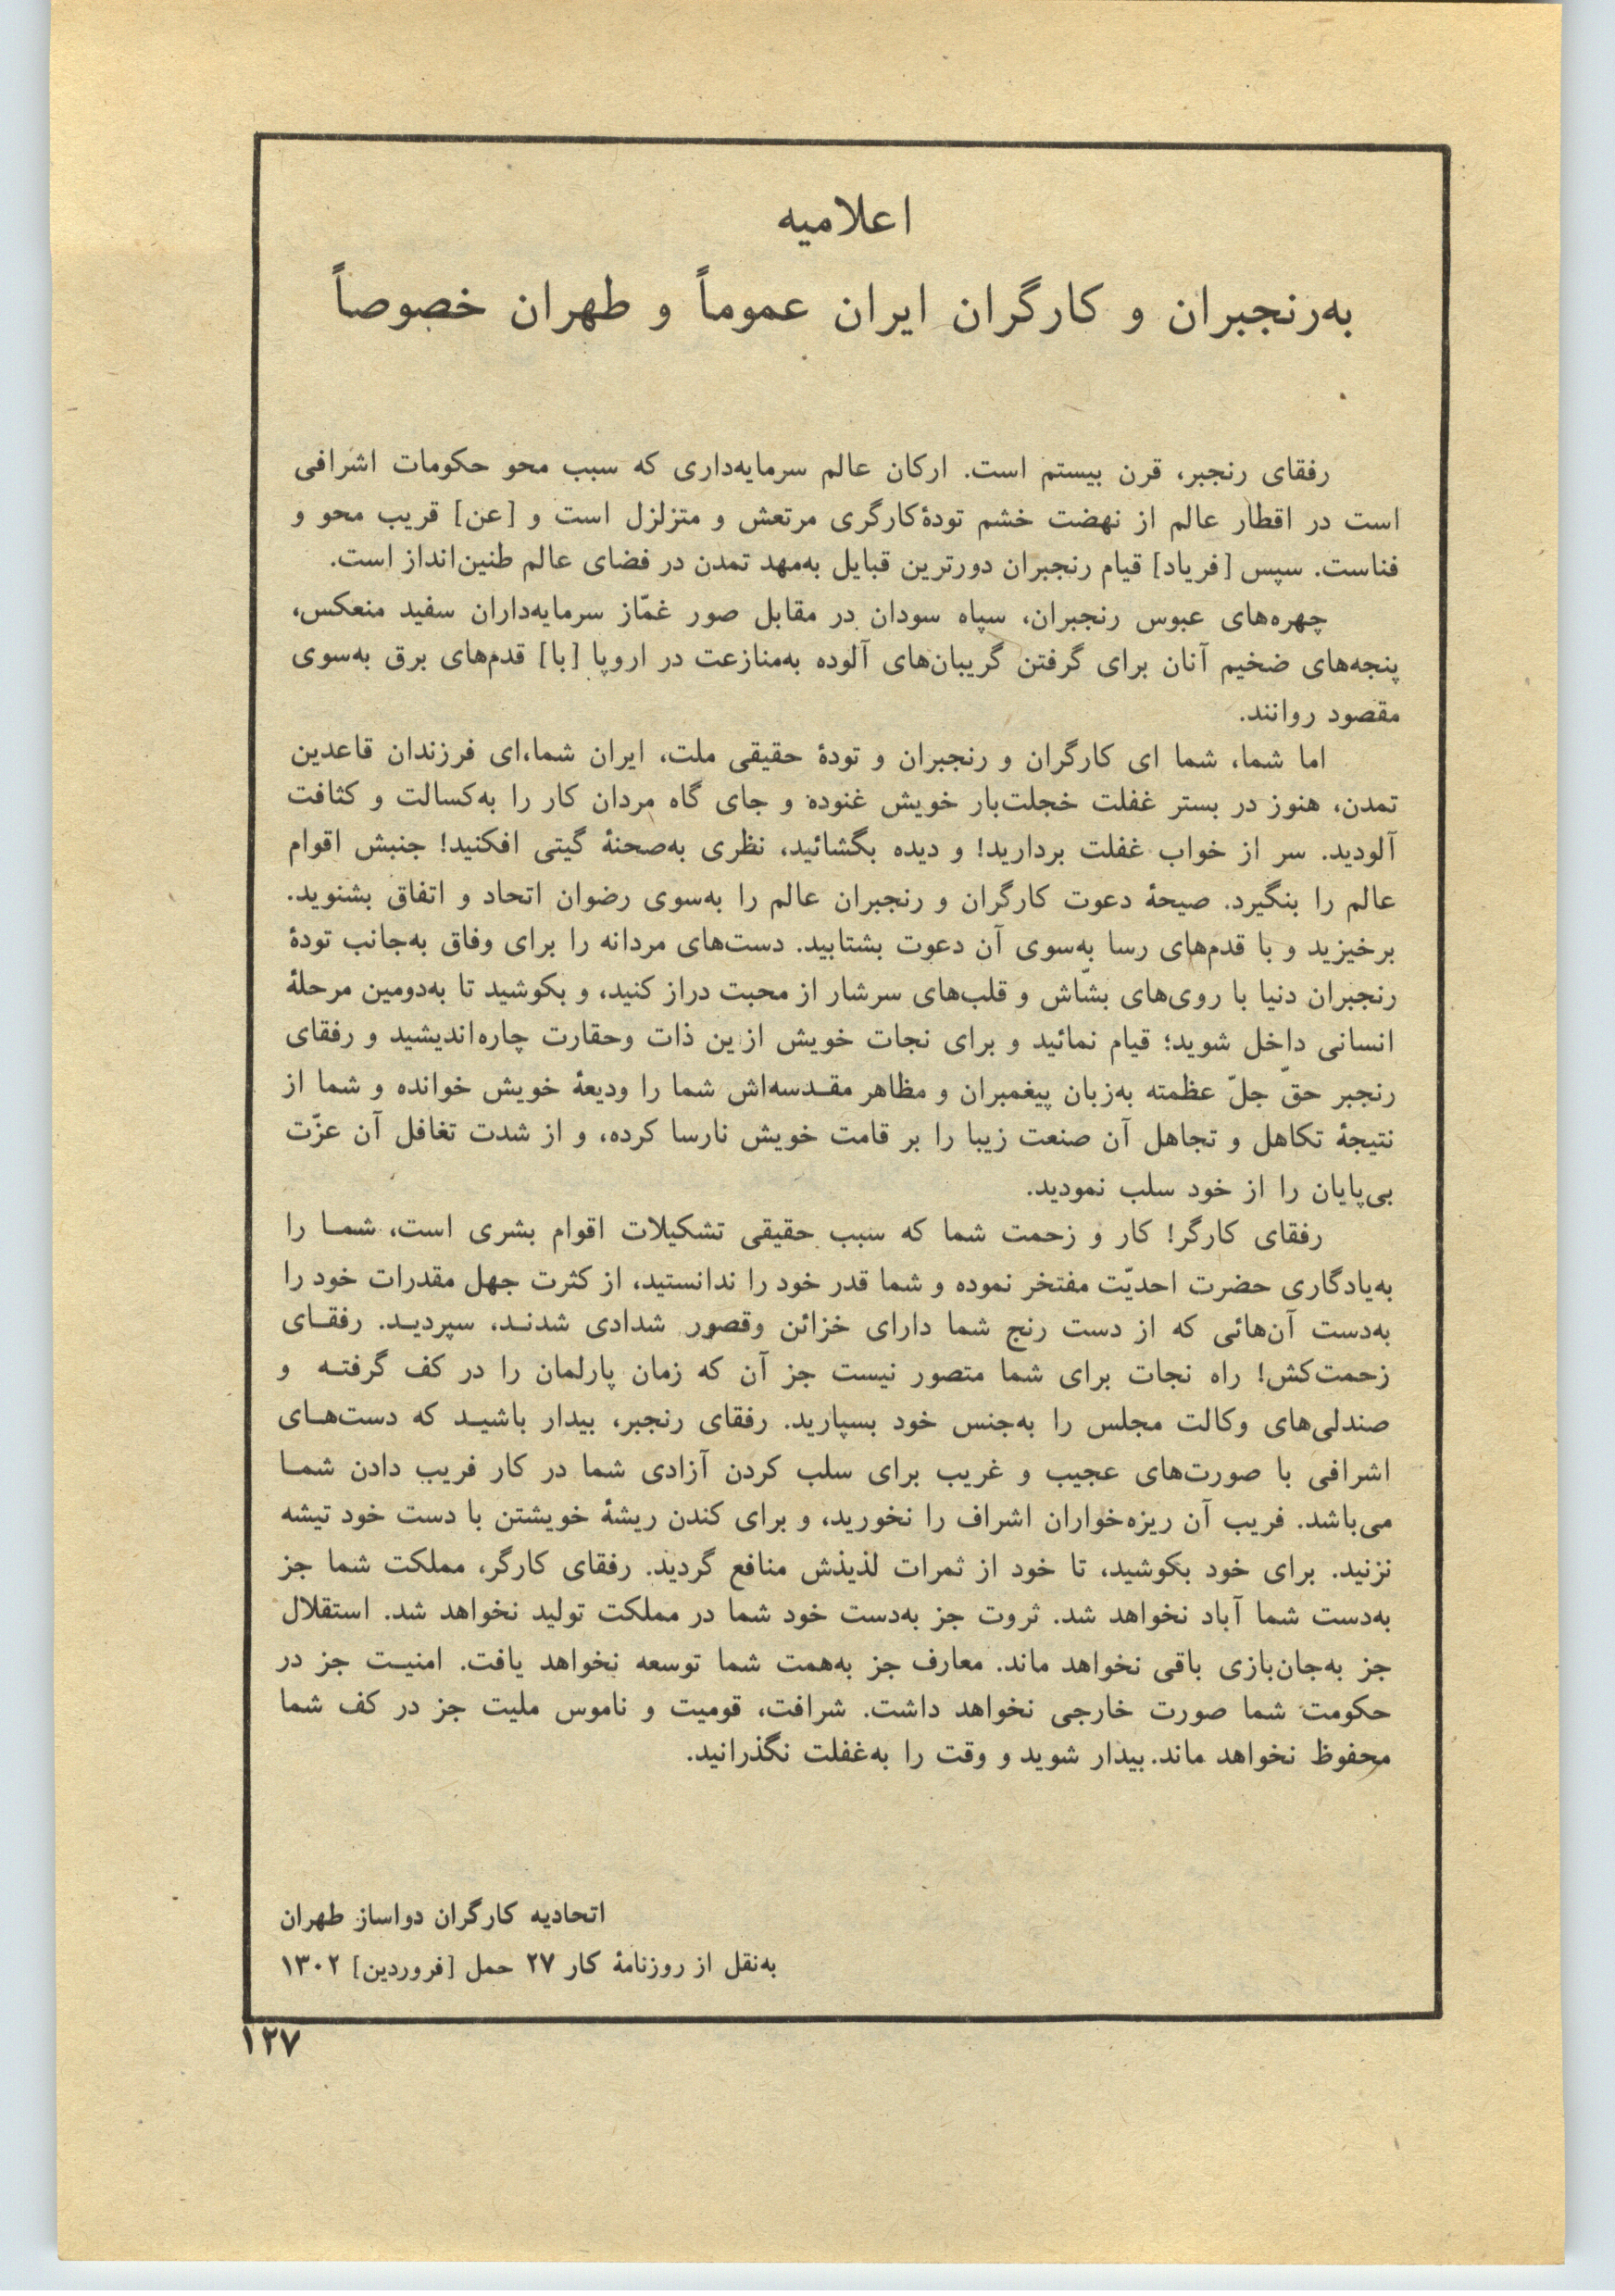 اعلامیه
به‌رنجبران و کارگران ایران عموماً و طهران خصوصاً
رفقای رنجبر، قرن بیستم است. ارکان عالم سرمایه‌داری که سبب محو حکومات اشرافی
است در اقطار عالم از نهضت خشم تودهٔ‌کارگری مرتعش و متزلزل است و [عن] قریب محو و
فناست. سپس [فریاد] قیام رنجبران دورترین قبایل به‌مهد تمدن در فضای عالم طنین‌انداز است.
چهره‌های عبوس رنجبران، سپاه سودان در مقابل صور غمّاز سرمایه‌داران سفید منعکس،
پنجه‌های ضخیم آنان برای گرفتن گریبان‌های آلوده به‌منازعت در اروپا [با] قدم‌های برق به‌سوی
مقصود روانند.
اما شما، شما ای کارگران و رنجبران و تودهٔ حقیقی ملت، ایران شما،ای فرزندان قاعدین
تمدن، هنوز در بستر غفلت خجلت‌بار خویش غنوده و جای گاه مردان کار را به‌کسالت و کثافت
آلودید. سر از خواب غفلت بردارید! و دیده بگشائید، نظری به‌صحنهٔ گیتی افکنید! جنبش اقوام
عالم را بنگیرد. صیحهٔ دعوت کارگران و رنجبران عالم را به‌سوی رضوان اتحاد و اتفاق بشنوید.
برخیزید و با قدم‌های رسا به‌سوی آن دعوت بشتابید. دست‌های مردانه را برای وفاق به‌جانب تودهٔ
رنجبران دنیا با روی‌های بشّاش و قلب‌های سرشار از محبت دراز کنید، و بکوشید تا به‌دومین مرحلهٔ
انسانی داخل شوید؛ قیام نمائید و برای نجات خویش ازین ذات وحقارت چاره‌اندیشید و رفقای
رنجبر حقّ جلّ عظمته به‌زبان پیغمبران و مظاهر مقـدسه‌اش شما را ودیعهٔ خویش خوانده و شما از
نتیجهٔ تکاهل و تجاهل آن صنعت زیبا را بر قامت خویش نارسا کرده، و از شدت تغافل آن عزّت
بی‌پایان را از خود سلب نمودید.
رفقای کارگر! کار و زحمت شما که سبب حقیقی تشکیلات اقوام بشری است، شمـا را
به‌یادگاری حضرت احدیّت مفتخر نموده و شما قدر خود را ندانستید، از کثرت جهل مقدرات خود را
به‌دست آن‌هائی که از دست رنج شما دارای خزائن وقصور شدادی شدنـد، سپردیـد. رفقـای
زحمت‌کش! راه نجات برای شما متصور نیست جز آن که زمان پارلمان را در کف گرفتـه و
صندلی‌های وکالت مجلس را به‌جنس خود بسپارید. رفقای رنجبر، بیدار باشیـد که دست‌هـای
اشرافی با صورت‌های عجیب و غریب برای سلب کردن آزادی شما در کار فریب دادن شمـا
می‌باشد. فریب آن ریزه‌خواران اشراف را نخورید، و برای کندن ریشهٔ خویشتن با دست خود تیشه
نزنید. برای خود بکوشید، تا خود از ثمرات لذیذش منافع گردید. رفقای کارگر، مملکت شما جز
به‌دست شما آباد نخواهد شد. ثروت جز به‌دست خود شما در مملکت تولید نخواهد شد. استقلال
جز به‌جان‌بازی باقی نخواهد ماند. معارف جز به‌همت شما توسعه نخواهد یافت. امنیـت جز در
حکومت شما صورت خارجی نخواهد داشت. شرافت، قومیت و ناموس ملیت جز در کف شما
محفوظ نخواهد ماند. بیدار شوید و وقت را به‌غفلت نگذرانید.
اتحادیه کارگران دواساز طهران
به‌نقل از روزنامهٔ کار ۲۷ حمل [فروردین] ۱۳۰۲
۱۲۷